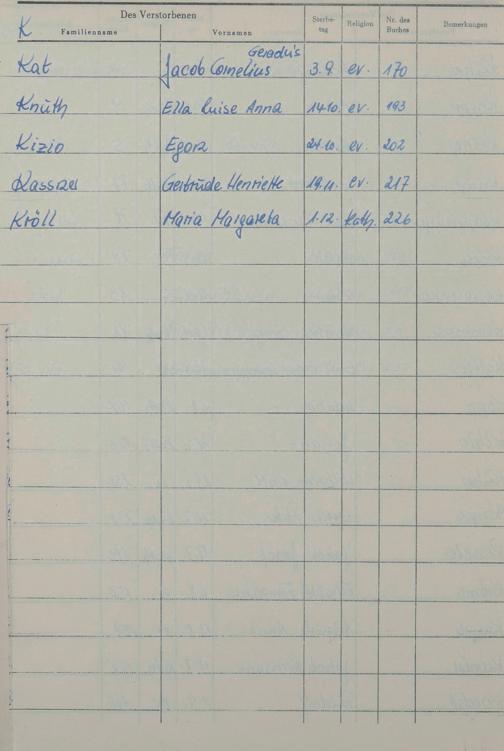 K
Des Verstorbenen
Familienname Vornamen Sterbe-tag Religion Nr. des Buches Bemerkungen
Kat Jacob Cornelius Gerardus 3.9. ev. 170
Knuth Ella Luise Anna 14.10. ev. 193
Kizio Egon 21.10. ev. 202
Gertrude Henriette 19.11. ev. 217
Kröll Maria Margareta 1.12. Kath. 226